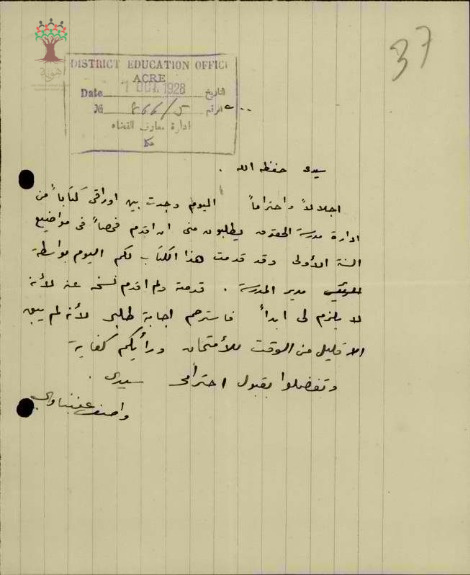 37
DISTRICT EDUCATION OFFICE
ACRE
Date 1 OCT 1928 تاريخ
№ ٤٦٦/٥ الرقم
ادارة معارف القضاء
عكا
سيدي حفظه الله .
اجلالاً واحتراماً اليوم وجدت بين اوراقي كتاباً من
ادارة مدرسة الحقوق يطلبون مني ان اقدم فحصاً في مواضيع
السنة الأولى وقد قدمت هذا الكتاب لكم اليوم بواسطة
مدير المدرسة . قدمته ولم اقدم نسخة عنه لأنه
لا يلزم لي ابداً فاسترحم اجابة طلبي لأنه لم يبق
الا قليل من الوقت للأمتحان ورأيكم كفاية
وتفضلوا بقبول احترامي سيدي .
واصف عنبتاوي